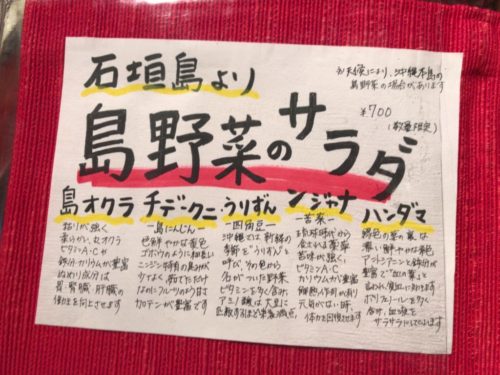 石垣島より
お天候により、沖縄本島の
島野菜の場合があります
¥700
(数量限定)
島野菜のサラダ
島オクラ
粘りが強く
柔らかい丸オクラ
ビタミンA・Cや
鉄分・カリウムが豊富
ぬめり成分は
胃・腎臓・肝臓の
働きを向上させます
チデークニ
―島にんじん―
色鮮やかな黄色
ゴボウのように細長い
ニンジン特有の臭みが
なく、茹でただけ
なのにフルーツのような甘さ
カロテンが豊富です
うりずん
―四角豆―
沖縄では新緑の
季節を"うりずん"と
呼び、その色から
名がついた野菜
ビタミンを多く含み、
アミノ酸は大豆に
匹敵するほど栄養満点!
ンジャナ
―苦菜―
琉球時代から
食される薬草
苦味が強く、
ビタミンA・C
カリウムが豊富
解熱作用があり
元気がない時、
体力を回復させます
ハンダマ
緑色の葉の裏は
濃い鮮やかな紫色
アントシアニンと鉄分が
豊富で"血の葉"と
言われ、貧血に効きます
ポリフェノールを多く
含み、血液を
サラサラにしてくれます